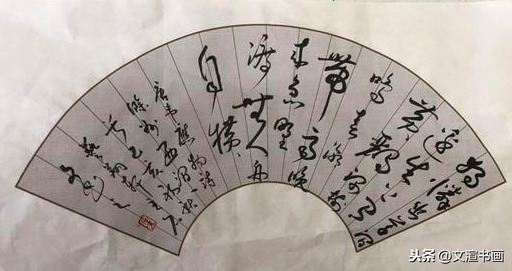 独怜幽草涧
边生上有
黄鹂深树
鸣春潮
带雨晚
来急野
渡无人舟
自横
唐韦应物诗
滁州西涧
头条@文渲书画